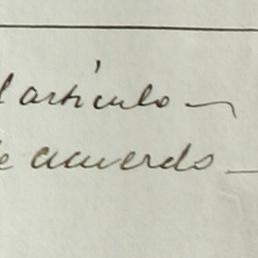 l artículo —
de acuerdo —